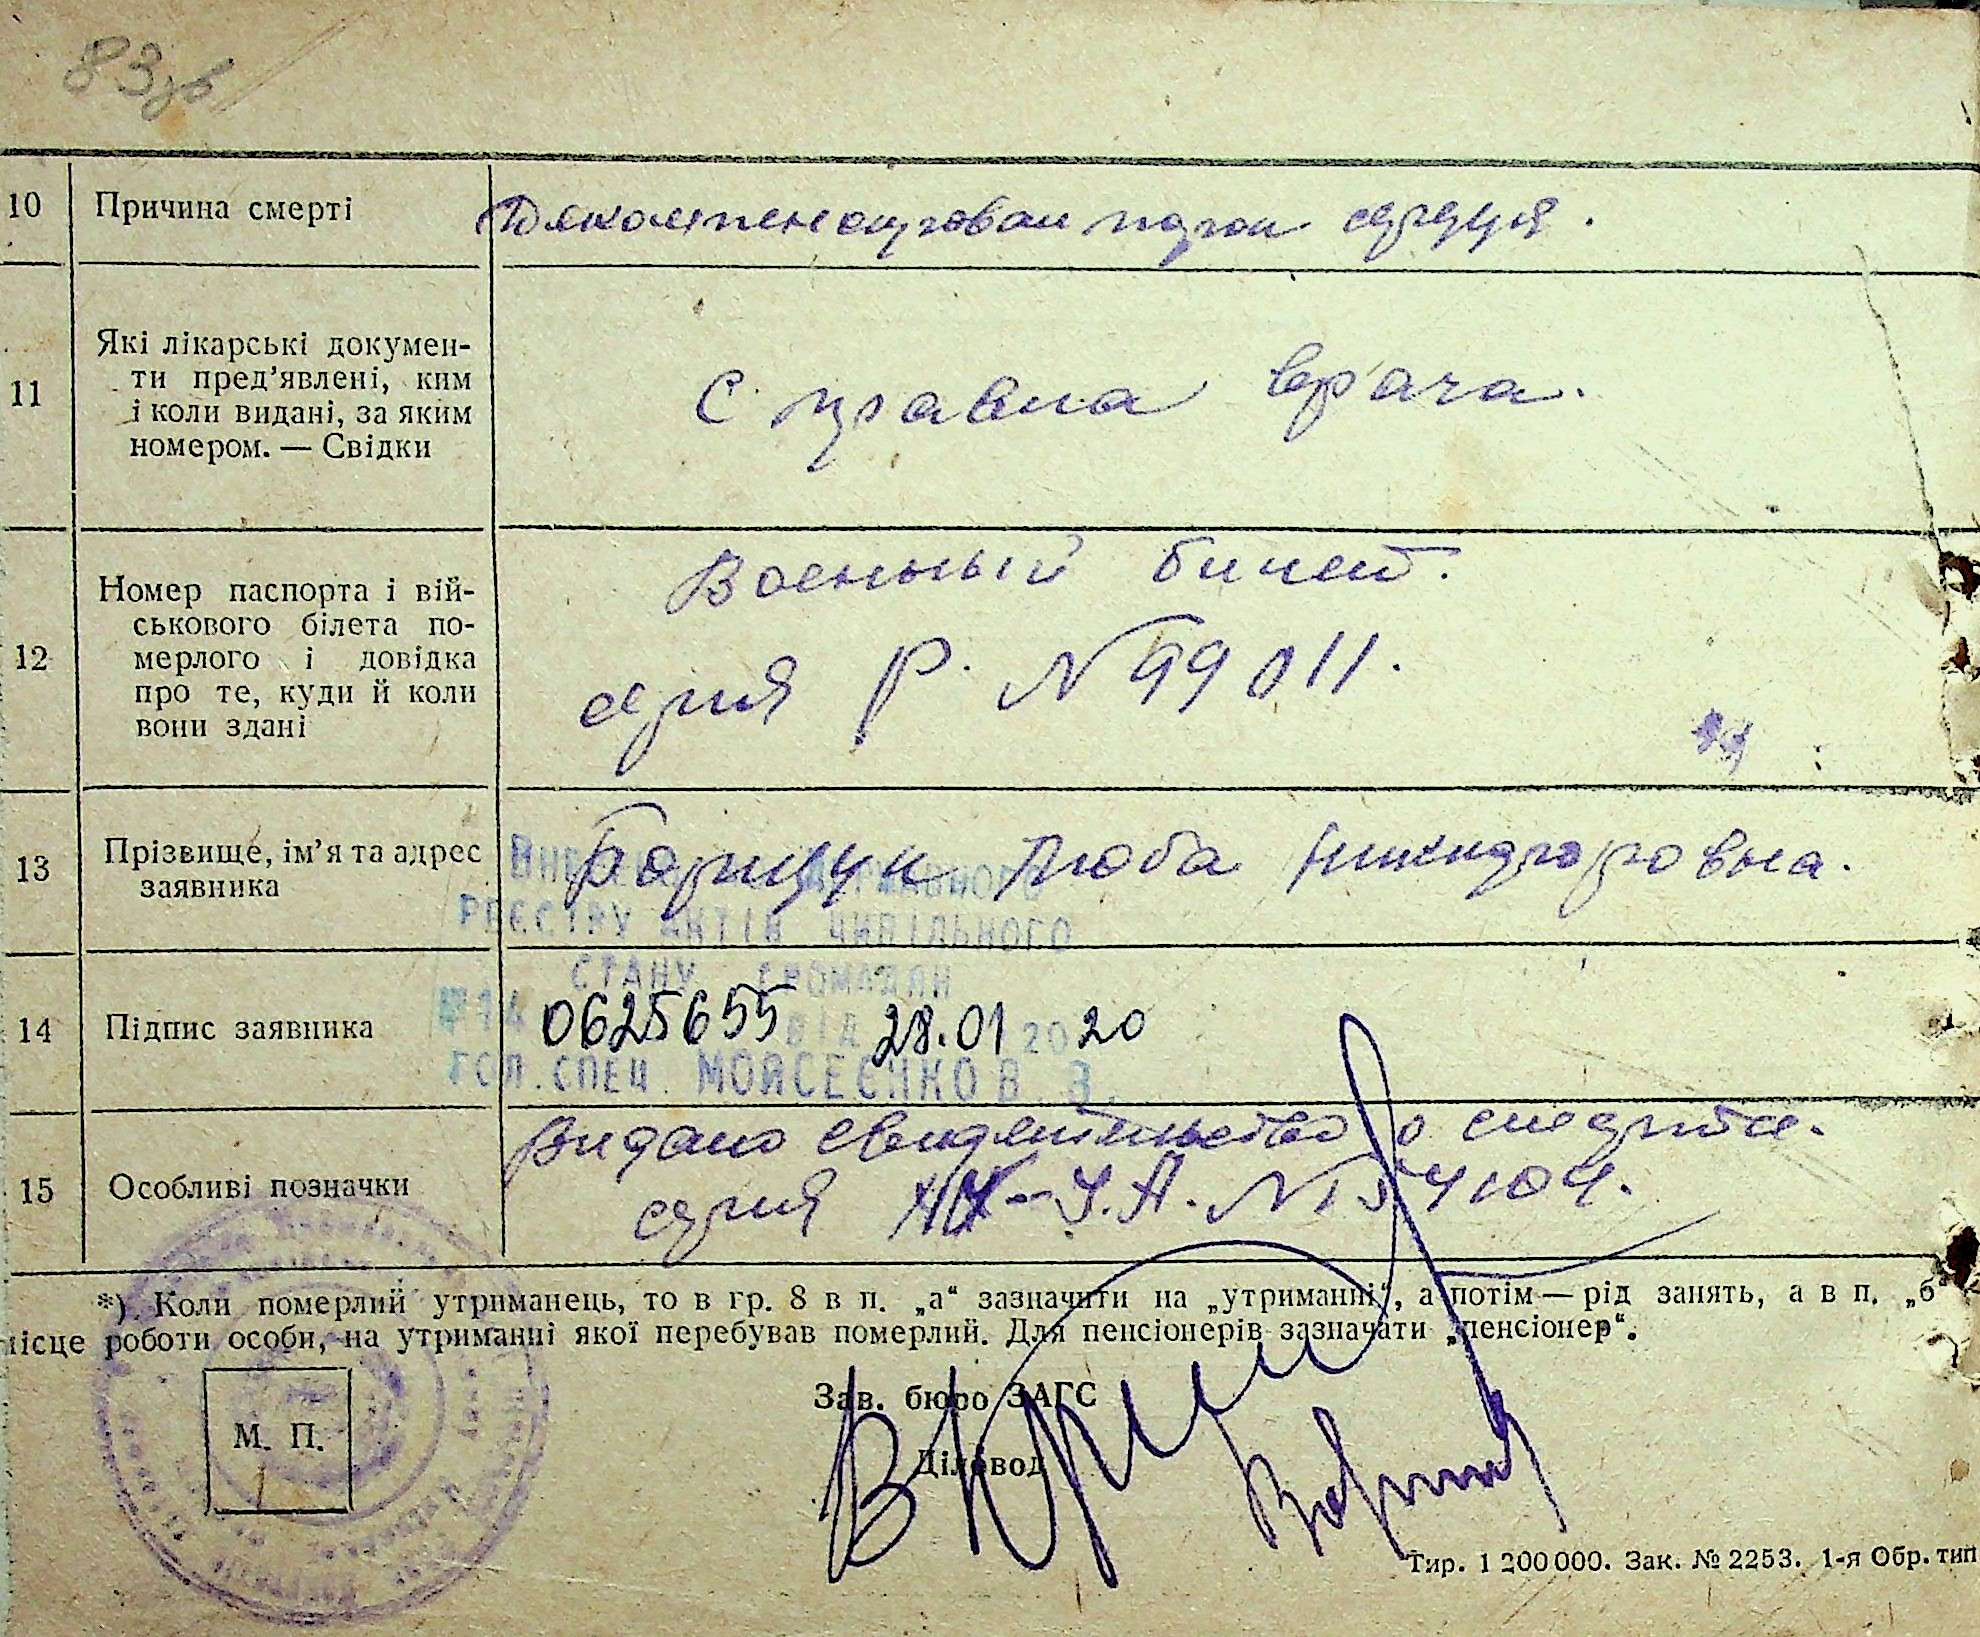 83зв
10 Причина смерті
порок сердця.
11 Які лікарські докумен-
ти пред’явлені, ким
і коли видані, за яким
номером. — Свідки
Справка врача.
12 Номер паспорта і вій-
ськового білета по-
мерлого і довідка
про те, куди й коли
вони здані
Военный билет.
серия Р. N 99011.
13 Прізвище, ім’я та адрес
заявника
Борщук Люба Никидоровна.
ДЕРЖАВНОГО
РЕЄСТРУ АКТІВ ЦИВІЛЬНОГО
СТАНУ ГРОМАДЯН
14 Підпис заявника
0625655 ВІД 28.01 20 20
СПЕЦ. МОЙСЕЄНКО В. В.
15 Особливі позначки
Видано свидетельство о смерти.
серия У.А. N 154104.
*) Коли померлий утриманець, то в гр. 8 в п. „а“ зазначити на „утриманні“, а потім — рід занять, а в п. „б
місце роботи особи, на утриманні якої перебував померлий. Для пенсіонерів зазначати „пенсіонер“.
М. П.
Зав. бюро ЗАГС
Діловод
Тир. 1 200 000. Зак. № 2253. 1-я Обр. тип